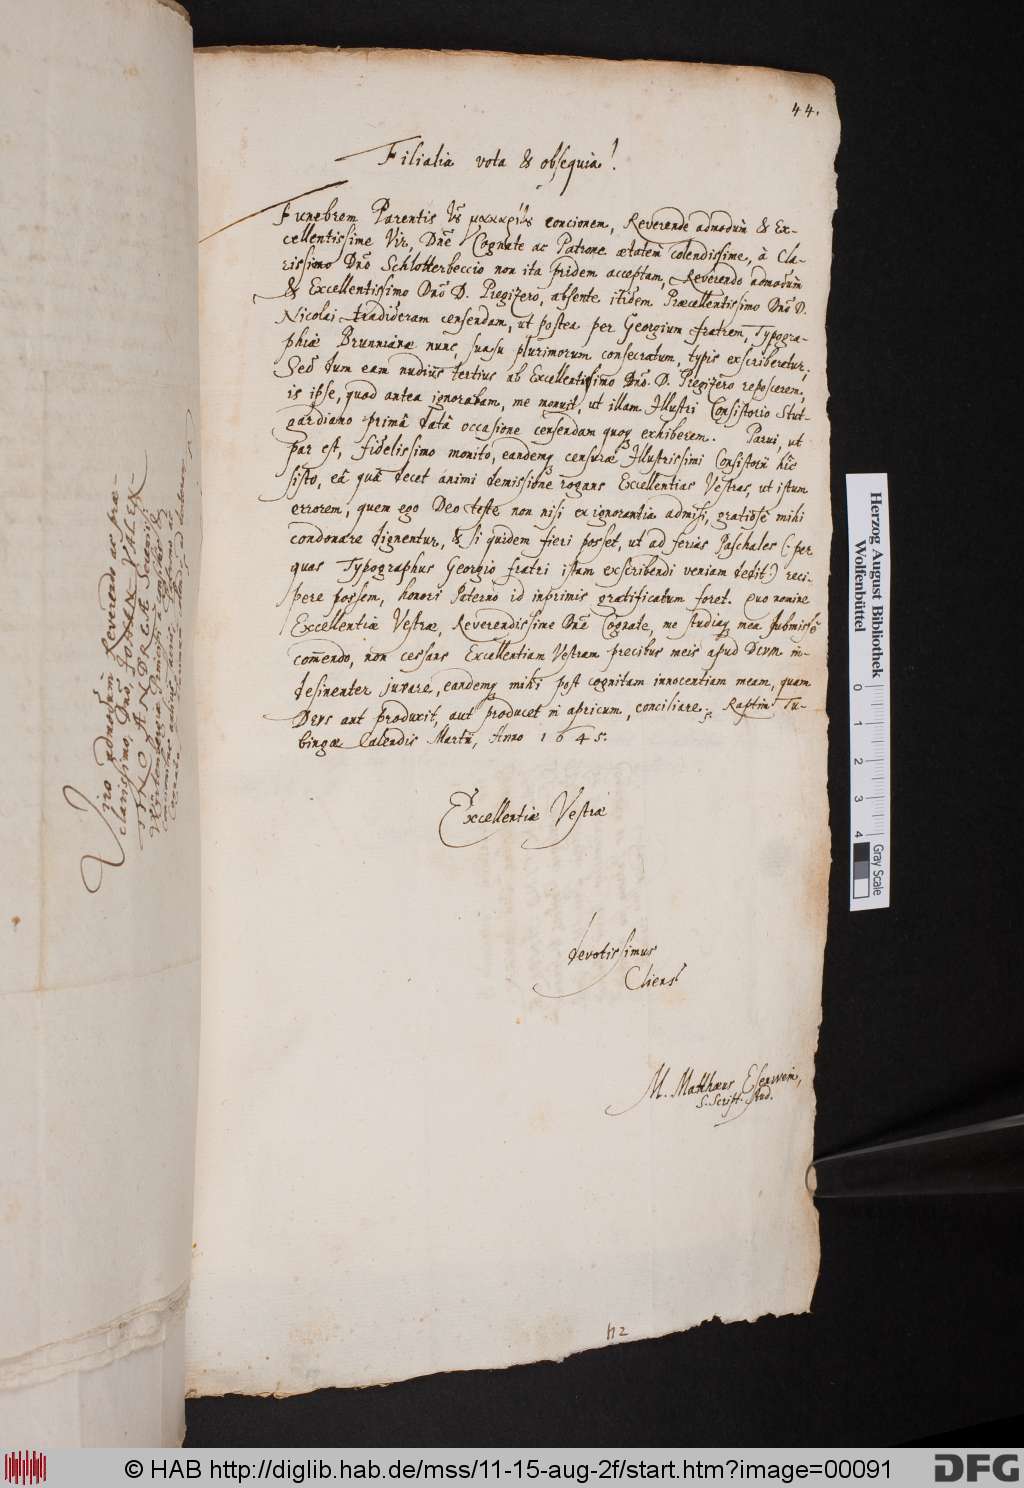 44.
Filialia vota & obsequia!
Funebrem Parentis concionem, Reverende admodum & Ex-
cellentissime Vir, Dne Cognate ac Patrone ætatem colendissime, à Cla-
rissimo Dno Schlotterbeccio non ita pridem acceptam, Reverendo admodum
& Excellentissimo Dno D. Pregizero, absente itidem Præcellentissimo Dno D.
Nicolai tradideram censendam, ut postea per Georgium fratrem, Typogra-
phiæ Brunnianæ nunc, suasu plurimorum consecratum, typis exscriberetur;
Sed dum eam nudius tertius ab Excellentissimo Dno. D. Pregizero reposcerem,
is ipse, quod antea ignorabam, me monuit, ut illam Illustri Consistorio Stut-
gardiano primâ datâ occasione censendam quoq exhiberem. Parui, ut
par est, fidelissimo monito, eandemq censuræ Illustrissimi Consistorii hîc
sisto, eâ quâ decet animi demissione rogans Excellentias Vestras, ut istum
errorem, quem ego Deo teste non nisi ex ignorantia admisi, gratiose mihi
condonare dignentur, & si quidem fieri posset, ut ad ferias Paschales (: per
quas Typographus Georgio fratri istam exscribendi veniam dedit:) reci-
pere possem, honori Paterno id inprimis gratificatum foret. Quo nomine
Excellentiæ Vestræ, Reverendissime Dne Cognate, me studiaq mea submissè
comendo, non cessans Excellentiam Vestram precibus meis apud Deum in-
desinenter juvare, eandemq mihi post cognitam innocentiam meam, quam
Deus aut produxit, aut producet in apricum, conciliare. Raptim Tu-
bingæ Calendis Martii, Anno 1645.
Excellentiæ Vestræ
devotissimus
Cliens
M. Matthæus Esenwein,
S. Script. Stud.
112
Viro admodum Reverendo ac præ-
clarissimo, Dno JOHAN. VALEN-
TINO ANDREÆ
Herzog August Bibliothek
Wolfenbüttel
0 1 2 3 4
Gray Scale
© HAB http://diglib.hab.de/mss/11-15-aug-2f/start.htm?image=00091
DFG